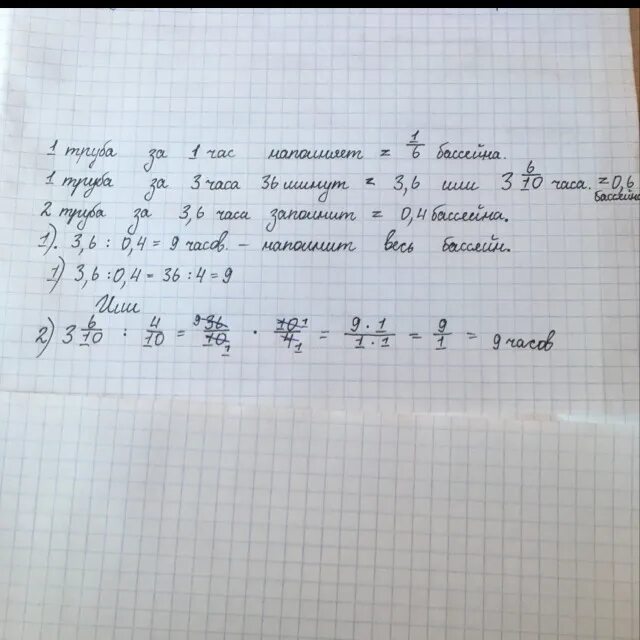 1 труба за 1 час наполняет = 1/6 бассейна.
1 труба за 3 часа 36 минут = 3,6 или 3 6/10 часа. = 0,6 бассейна
2 труба за 3,6 часа заполнит = 0,4 бассейна.
1). 3,6 : 0,4 = 9 часов. – наполнит весь бассейн.
1) 3,6 : 0,4 = 36 : 4 = 9
Или
2) 3 6/10 : 4/10 = 9 36/10 1 · 10 1/4 1 = 9·1/1·1 = 9/1 = 9 часов